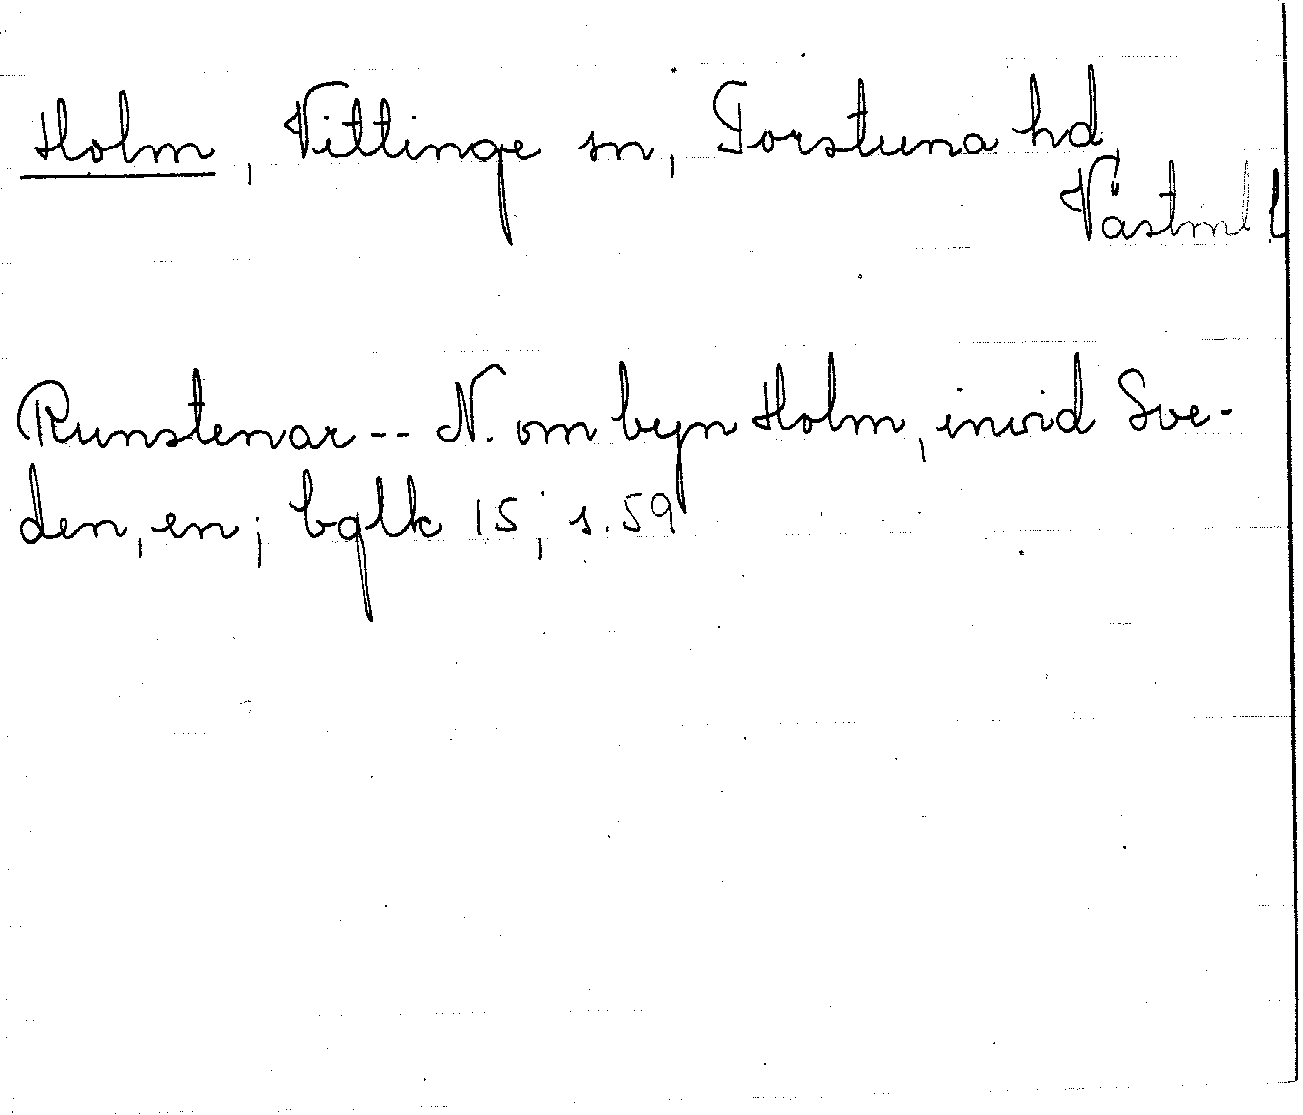 Holm, Vittinge sn, Torstuna hd,
Västml l
Runstenar -- N. om byn Holm, invid Sve-
den, en; bqlk 15; s. 59